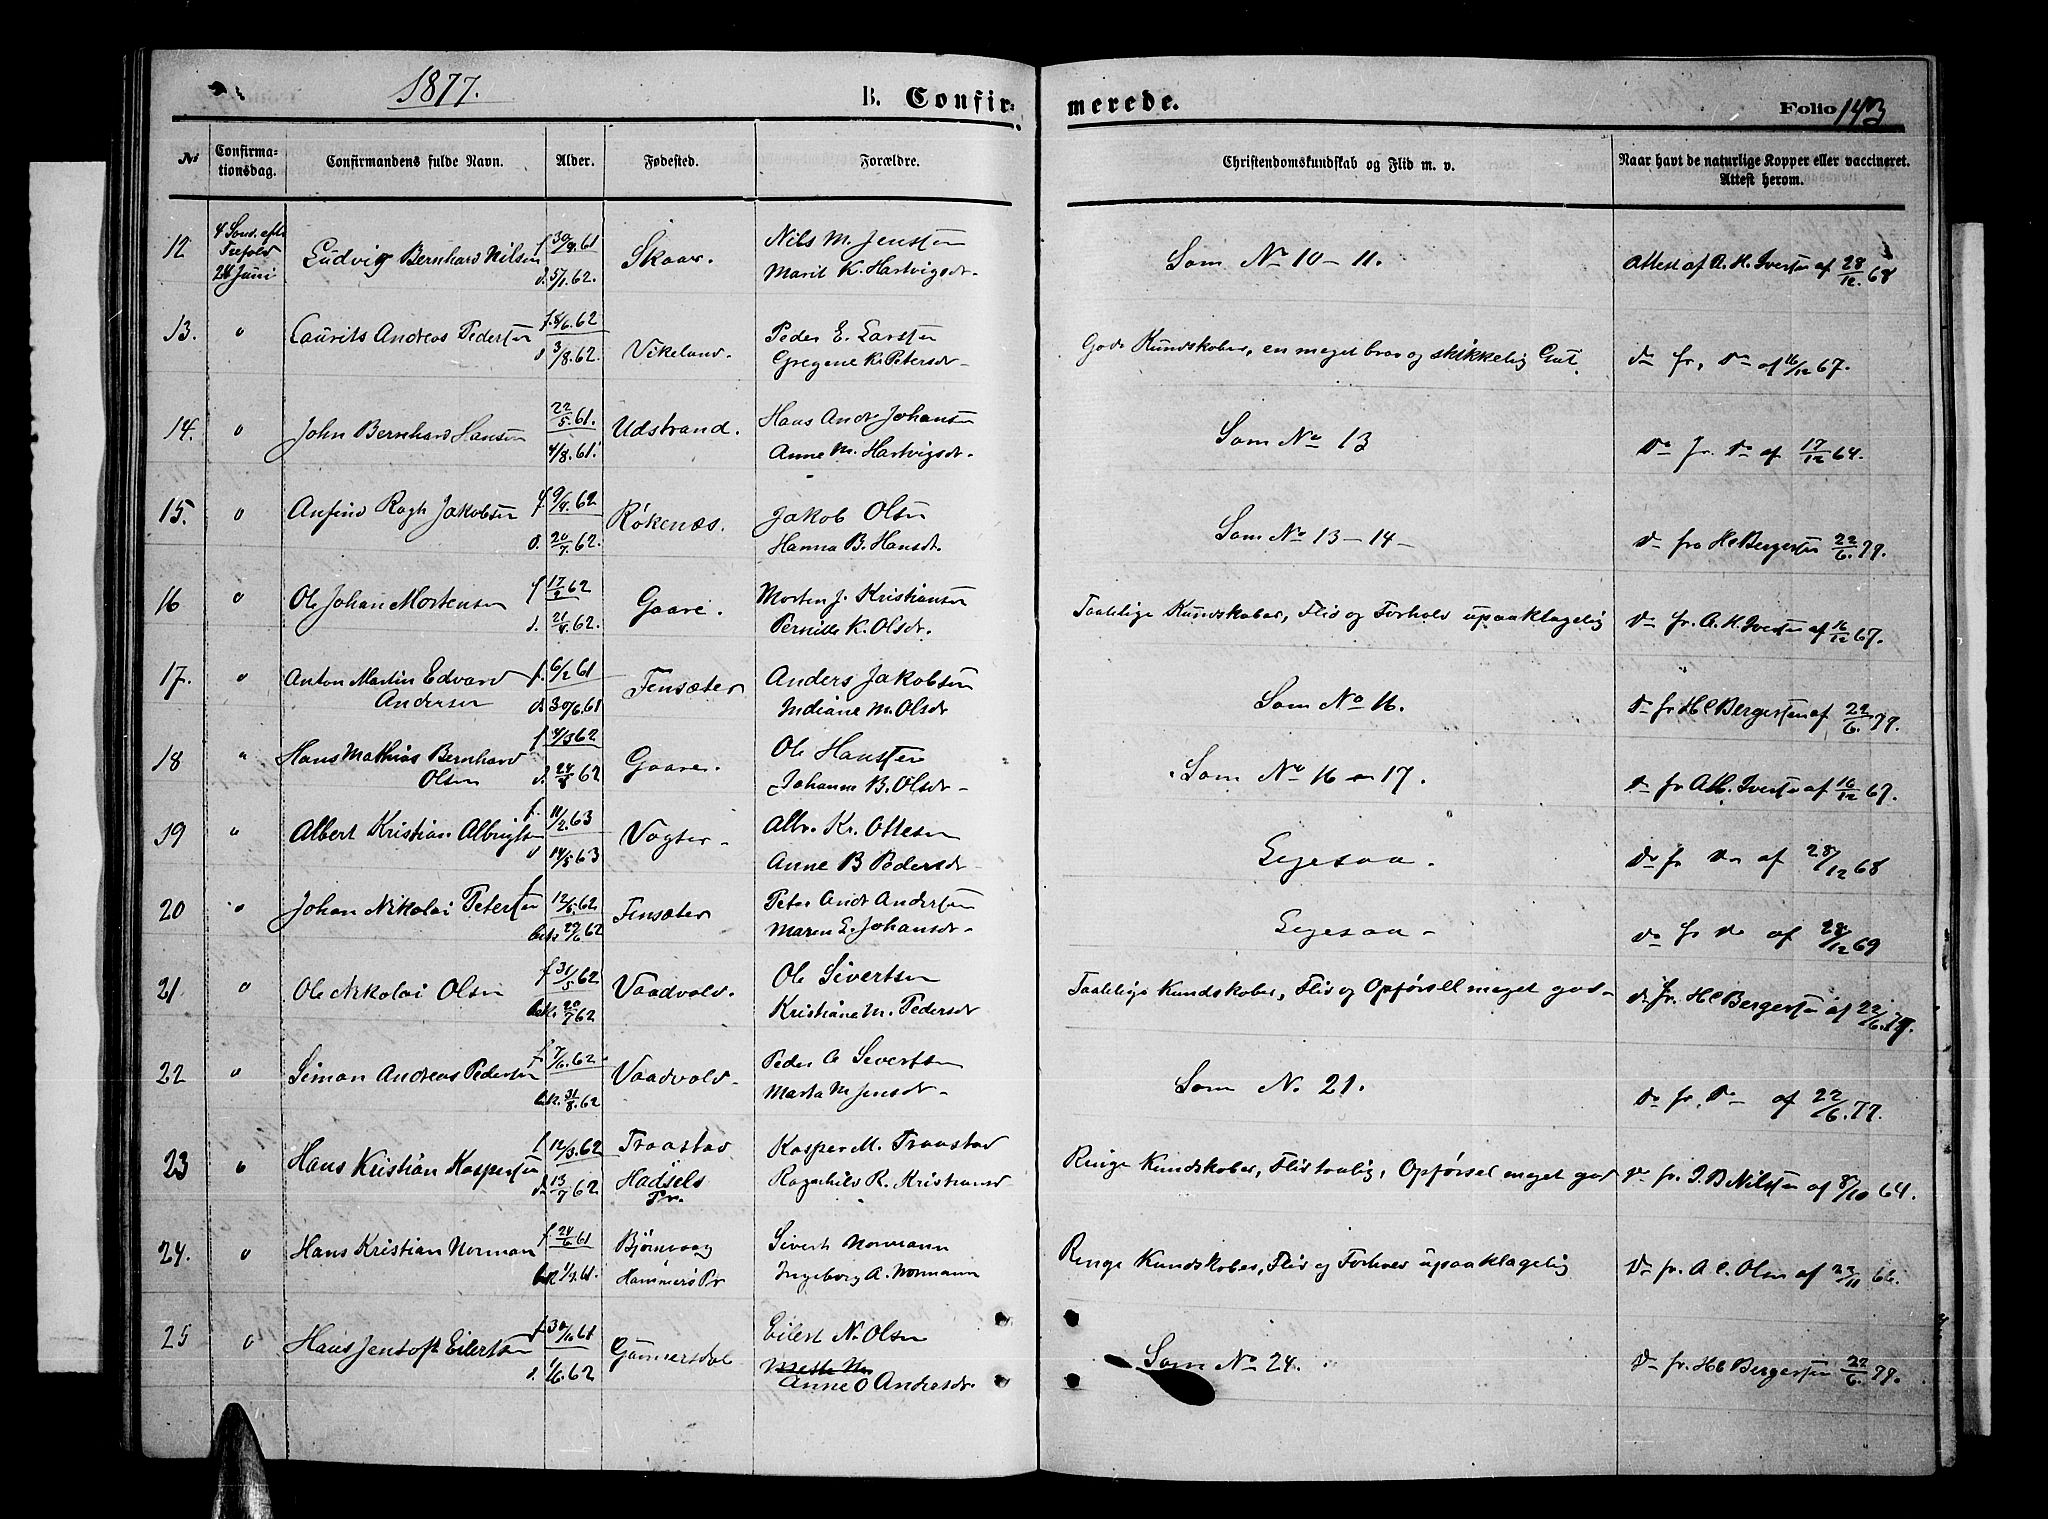 1877.
B. Confirmerede.
Folio 143
No
Confirmationsdag.
Confirmandens fulde Navn.
Alder.
Fødested.
Forældre.
Christendomskundskab og Flid m. v.
Naar havt de naturlige Kopper eller vaccineret. Attest herom.
12 4 Sønd. efter Trefold 24 Juni Ludvig Bernhard Nilsen f. 30/9.61 d. 5/1.62. Skaar. Nils M. Jensen Marit K. Hartvigsdr. Som No 10-11. Attest af A. H. Iversen af 28/12.68
13. " Laurits Andreas Pedersen f. 8/6.62 d. 3/8.62. Vikeland. Peder E. Larsen Gregene K. Petersdr. Gode Kundskaber, en meget brav og skikkelig Gut. Do fr. Do af 16/12 67.
14. " John Bernhard Hansen 22/5.61. 4/8.61. Udstrand. Hans Andr Johansen Anne M. Hartvigsdr. Som No 13 Do fr. Do af 17/12 64.
15. " Anfind Rogh Jakobsen f. 9/4.62 d. 20/7.62. Røkenæs. Jakob Olsen Hanna B. Hansdr. Som No 13-14- Do fra H C Bergersen 22/6.77.
16 " Ole Johan Mortensen f. 17/2 62 d. 21/4.62. Gaare. Morten J. Kristiansen Pernille K. Olsdr. Taalelige Kundskaber, Flid og Forhold upaaklagelig Do fr. A. H. Iversen af 16/12 67.
17. " Anton Martin Edvard Andersen f. 6/2 61 d. 30/6.61 Fensæter Anders Jakobsen Indiane M. Olsdr Som No 16. Do fr H C Bergersen af 22/6.77.
18 " Hans Mathias Bernhard Olsen f. 4/3 62 d. 24/8 62 Gaare. Ole Hansen Johanna B. Olsdr- Som No 16 - 17. Do fr A H. Iversen af 16/12 67.
19 " Albert Kristian Albrigtsen f. 11/2.63 d 14/5 63 Vogter- Albr. Kr. Ottesen Anne B Pedersdr- Ligesaa. Do fr Do af 28/12 68
20 " Johan Nikolai Petersen f. 12/5.62. 29/6 62 Fensæter Peter Andr Andersen Maren E. Johansdr- Ligesaa- Do fr Do af 28/12 69
21 " Ole Nikolai Olsen f. 31/5.62 20/7 62 Vaadvold. Ole Sivertsen Kristiane M. Pedersdr Taalelige Kundskaber, Flid og Opførsel meget god- Do fr. H C Bergersen af 22/6.77.
22 " Simon Andreas Pedersen f. 7/6.62- 31/8.62 Vaadvold- Peder O Sivertsen Marta M Jensdr- Som No. 21. Do fr. Do af 22/6.77.
23 " Hans Kristian Kaspersen f. 12/3.62 d. 13/7 62 Traastad Hadsels Pr. Kasper M. Traastad Ragnhild R. Kristiansd. Ringe Kundskaber, Flid taalig, Opførsel meget god Do fr. I. B Nilsen af 8/10 64.
24. " Hans Kristian Norman f. 24/6 61 1/9.61. Bjørnvaag Hammerø Pr Sivert Normann Ingeborg A. Normann Ringe Kundskaber, Flid og Forhold upaaklagelig Do fr. A C. Olsen af 23/11 66.
25 " Hans Jentoft Eilertsen f. 30/11 61 d. 1/6.62 Gunnersdal Eilert N. Olsen Anne O Andreasdr. Som No 24. Do fr. H C Bergersen 22/6.77.